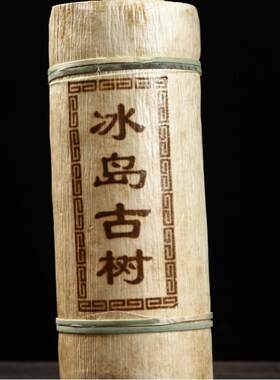 冰岛古树